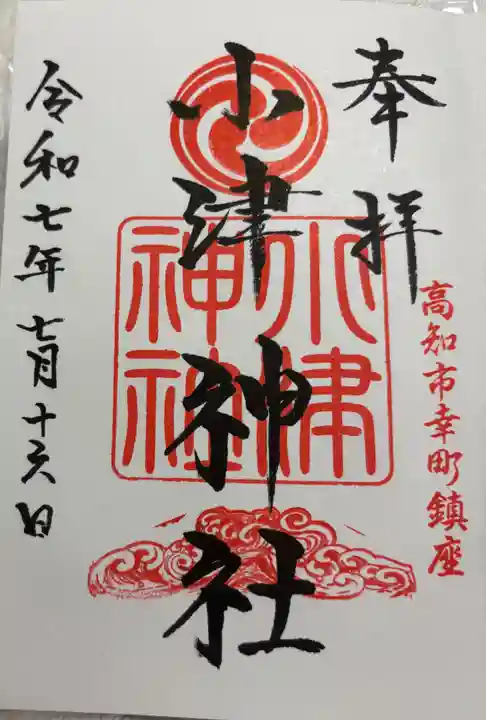 奉拝
高知市幸町鎮座
小津神社
小津
神社
令和七年七月十六日